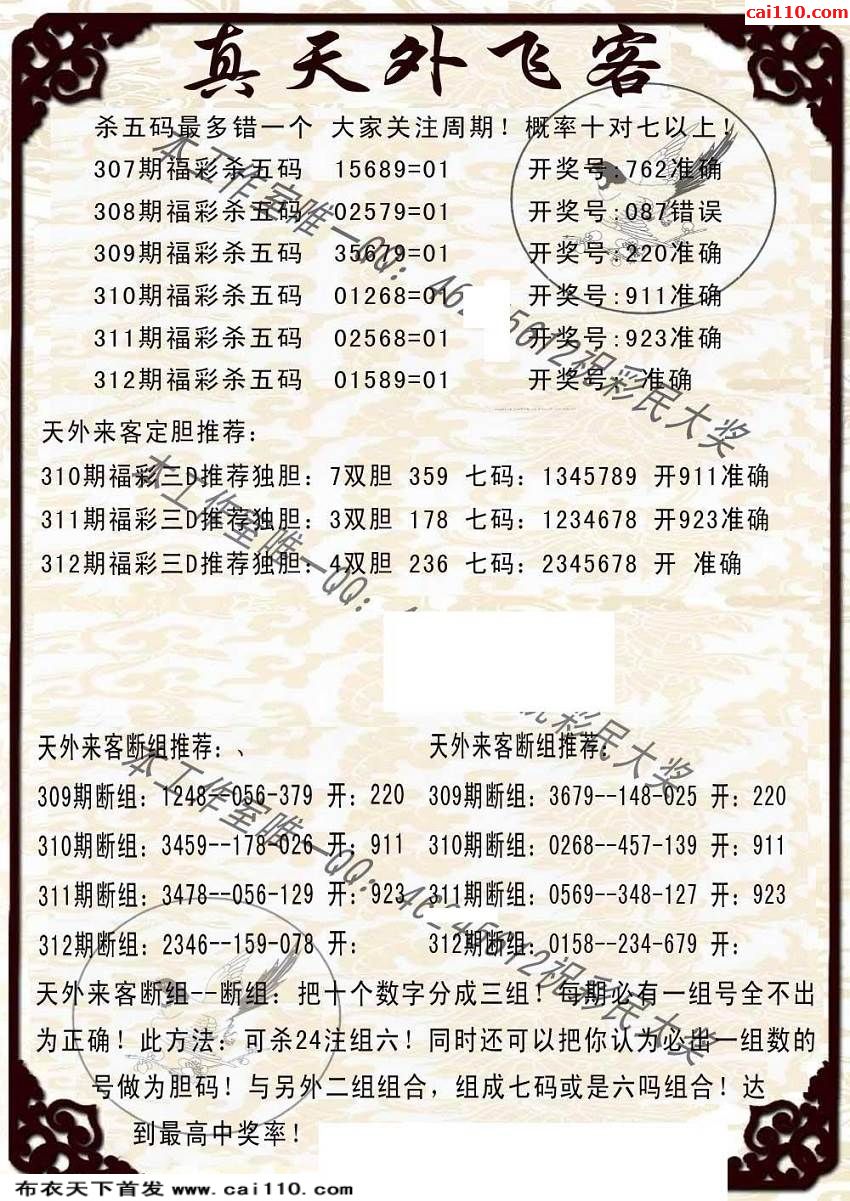 cai110.com
真天外飞客
杀五码最多错一个 大家关注周期！概率十对七以上！
307期福彩杀五码 15689=01 开奖号:762准确
308期福彩杀五码 02579=01 开奖号:087错误
309期福彩杀五码 35679=01 开奖号:220准确
310期福彩杀五码 01268=01 开奖号:911准确
311期福彩杀五码 02568=01 开奖号:923准确
312期福彩杀五码 01589=01 开奖号: 准确
天外来客定胆推荐：
310期福彩三D推荐独胆：7双胆 359 七码：1345789 开911准确
311期福彩三D推荐独胆：3双胆 178 七码：1234678 开923准确
312期福彩三D推荐独胆：4双胆 236 七码：2345678 开 准确
天外来客断组推荐：、 天外来客断组推荐：
309期断组：1248--056-379 开：220 309期断组：3679--148-025 开：220
310期断组：3459--178-026 开：911 310期断组：0268--457-139 开：911
311期断组：3478--056-129 开：923 311期断组：0569--348-127 开：923
312期断组：2346--159-078 开： 312期断组：0158--234-679 开：
天外来客断组--断组：把十个数字分成三组！每期必有一组号全不出
为正确！此方法：可杀24注组六！同时还可以把你认为必出一组数的
号做为胆码！与另外二组组合，组成七码或是六吗组合！达
到最高中奖率！
本工作室唯一QQ：
祝彩民大奖
本工作室唯一QQ：
彩民大奖
本工作室唯一QQ：
祝彩民大奖
布衣天下首发 www.cai110.com